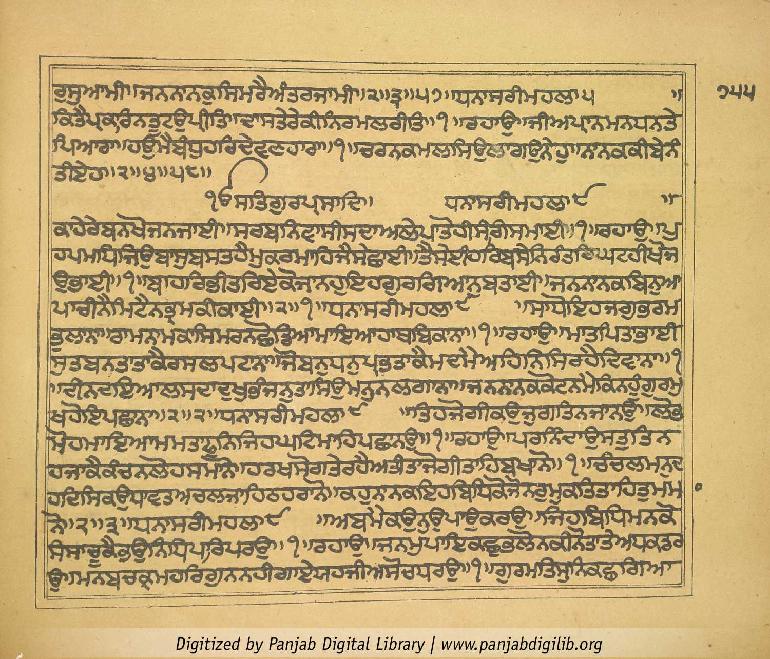 ਰਸੁਆਮੀ॥ਜਨਨਾਨਕੁਸਿਮਰੈਅੰਤਰਜਾਮੀ॥੨॥੩॥੫੭॥ਧਨਾਸਰੀਮਹਲਾ੫ ॥ ੭੫੫
ਕਿਤੈਪ੍ਰਕਾਰਿਨਤੂਟਉਪ੍ਰੀਤਿ॥ਦਾਸਤੇਰੇਕੀਨਿਰਮਲਰੀਤਿ॥੧॥ਰਹਾਉ॥ਜੀਅਪ੍ਰਾਨਮਨਧਨਤੇ
ਪਿਆਰਾ॥ਹਉਮੈਬੰਧੁਹਰਿਦੇਵਣਹਾਰਾ॥੧॥ਚਰਨਕਮਲਸਿਉਲਾਗਉਨੇਹੁ॥ਨਾਨਕਕੀਬੇਨੰ
ਤੀਏਹ॥੨॥੪॥੫੮॥
ੴਸਤਿਗੁਰਪ੍ਰਸਾਦਿ॥ ਧਨਾਸਰੀਮਹਲਾ੯ ॥
ਕਾਹੇਰੇਬਨਖੋਜਨਜਾਈ॥ਸਰਬਨਿਵਾਸੀਸਦਾਅਲੇਪਾਤੋਹੀਸੰਗਿਸਮਾਈ॥੧॥ਰਹਾਉ॥ਪੁ
ਹਪਮਧਿਜਿਉਬਾਸੁਬਸਤਹੈਮੁਕਰਮਾਹਿਜੈਸੇਛਾਈ॥ਤੈਸੇਹੀਹਰਿਬਸੇਨਿਰੰਤਰਿਘਟਹੀਖੋਜ
ਉਭਾਈ॥੧॥ਬਾਹਰਿਭੀਤਰਿਏਕੋਜਾਨਹੁਇਹੁਗੁਰਗਿਆਨੁਬਤਾਈ॥ਜਨਨਾਨਕਬਿਨੁਆ
ਪਾਚੀਨੈਮਿਟੈਨਭ੍ਰਮਕੀਕਾਈ॥੨॥੧॥ਧਨਾਸਰੀਮਹਲਾ੯ ॥ਸਾਧੋਇਹੁਜਗੁਭਰਮ
ਭੁਲਾਨਾ॥ਰਾਮਨਾਮਕਾਸਿਮਰਨੁਛੋਡਿਆਮਾਇਆਹਾਥਬਿਕਾਨਾ॥੧॥ਰਹਾਉ॥ਮਾਤਪਿਤਾਭਾਈ
ਸੁਤਬਨਿਤਾਤਾਕੈਰਸਲਪਟਾਨਾ॥ਜੋਬਨੁਧਨੁਪ੍ਰਭਤਾਕੈਮਦਮੈਅਹਿਨਿਸਿਰਹੈਦਿਵਾਨਾ॥੧
॥ਦੀਨਦਇਆਲਸਦਾਦੁਖਭੰਜਨਤਾਸਿਉਮਨੁਨਲਗਾਨਾ॥ਜਨਨਾਨਕਕੋਟਨਮੈਕਿਨਹੂਗੁਰਮੁ
ਖਿਹੋਇਪਛਾਨਾ॥੨॥੨॥ਧਨਾਸਰੀਮਹਲਾ੯ ॥ਤਿਹਜੋਗੀਕਉਜੁਗਤਿਨਜਾਨਉ॥ਲੋਭ
ਮੋਹਮਾਇਆਮਮਤਾਫੁਨਿਜਿਹਘਟਿਮਾਹਿਪਛਾਨਉ॥੧॥ਰਹਾਉ॥ਪਰਨਿੰਦਾਉਸਤਤਿਨ
ਹਜਾਕੈਕੰਚਨਲੋਹਸਮਾਨੋ॥ਹਰਖਸੋਗਤੇਰਹੈਅਤੀਤਾਜੋਗੀਤਾਹਿਬਖਾਨੋ॥੧॥ਚੰਚਲਮਨੁਦ
ਹਦਿਸਿਕਉਧਾਵਤਅਚਲਜਾਹਿਠਹਰਾਨੋ॥ਕਹੁਨਾਨਕਇਹਬਿਧਿਕੋਜੋਨਰੁਮੁਕਤਿਤਾਹਿਤੁਮਮਾ
ਨੋ॥੨॥੩॥ਧਨਾਸਰੀਮਹਲਾ੯ ॥ਅਬਮੈਕਉਨੁਉਪਾਉਕਰਉ॥ਜਿਹਬਿਧਿਮਨਕੋ
ਸੰਸਾਚੂਕੈਭਉਨਿਧਿਪਾਰਿਪਰਉ॥੧॥ਰਹਾਉ॥ਜਨਮੁਪਾਇਕਛੁਭਲੋਨਕੀਨੋਤਾਤੇਅਧਿਕਡਰ
ਉ॥ਮਨਬਚਕ੍ਰਮਹਰਿਗੁਨਨਹੀਗਾਏਯਹਜੀਅਸੋਚਧਰਉ॥੧॥ਗੁਰਮਤਿਸੁਨਿਕਛੁਗਿਆ
Digitized by Panjab Digital Library | www.panjabdigilib.org